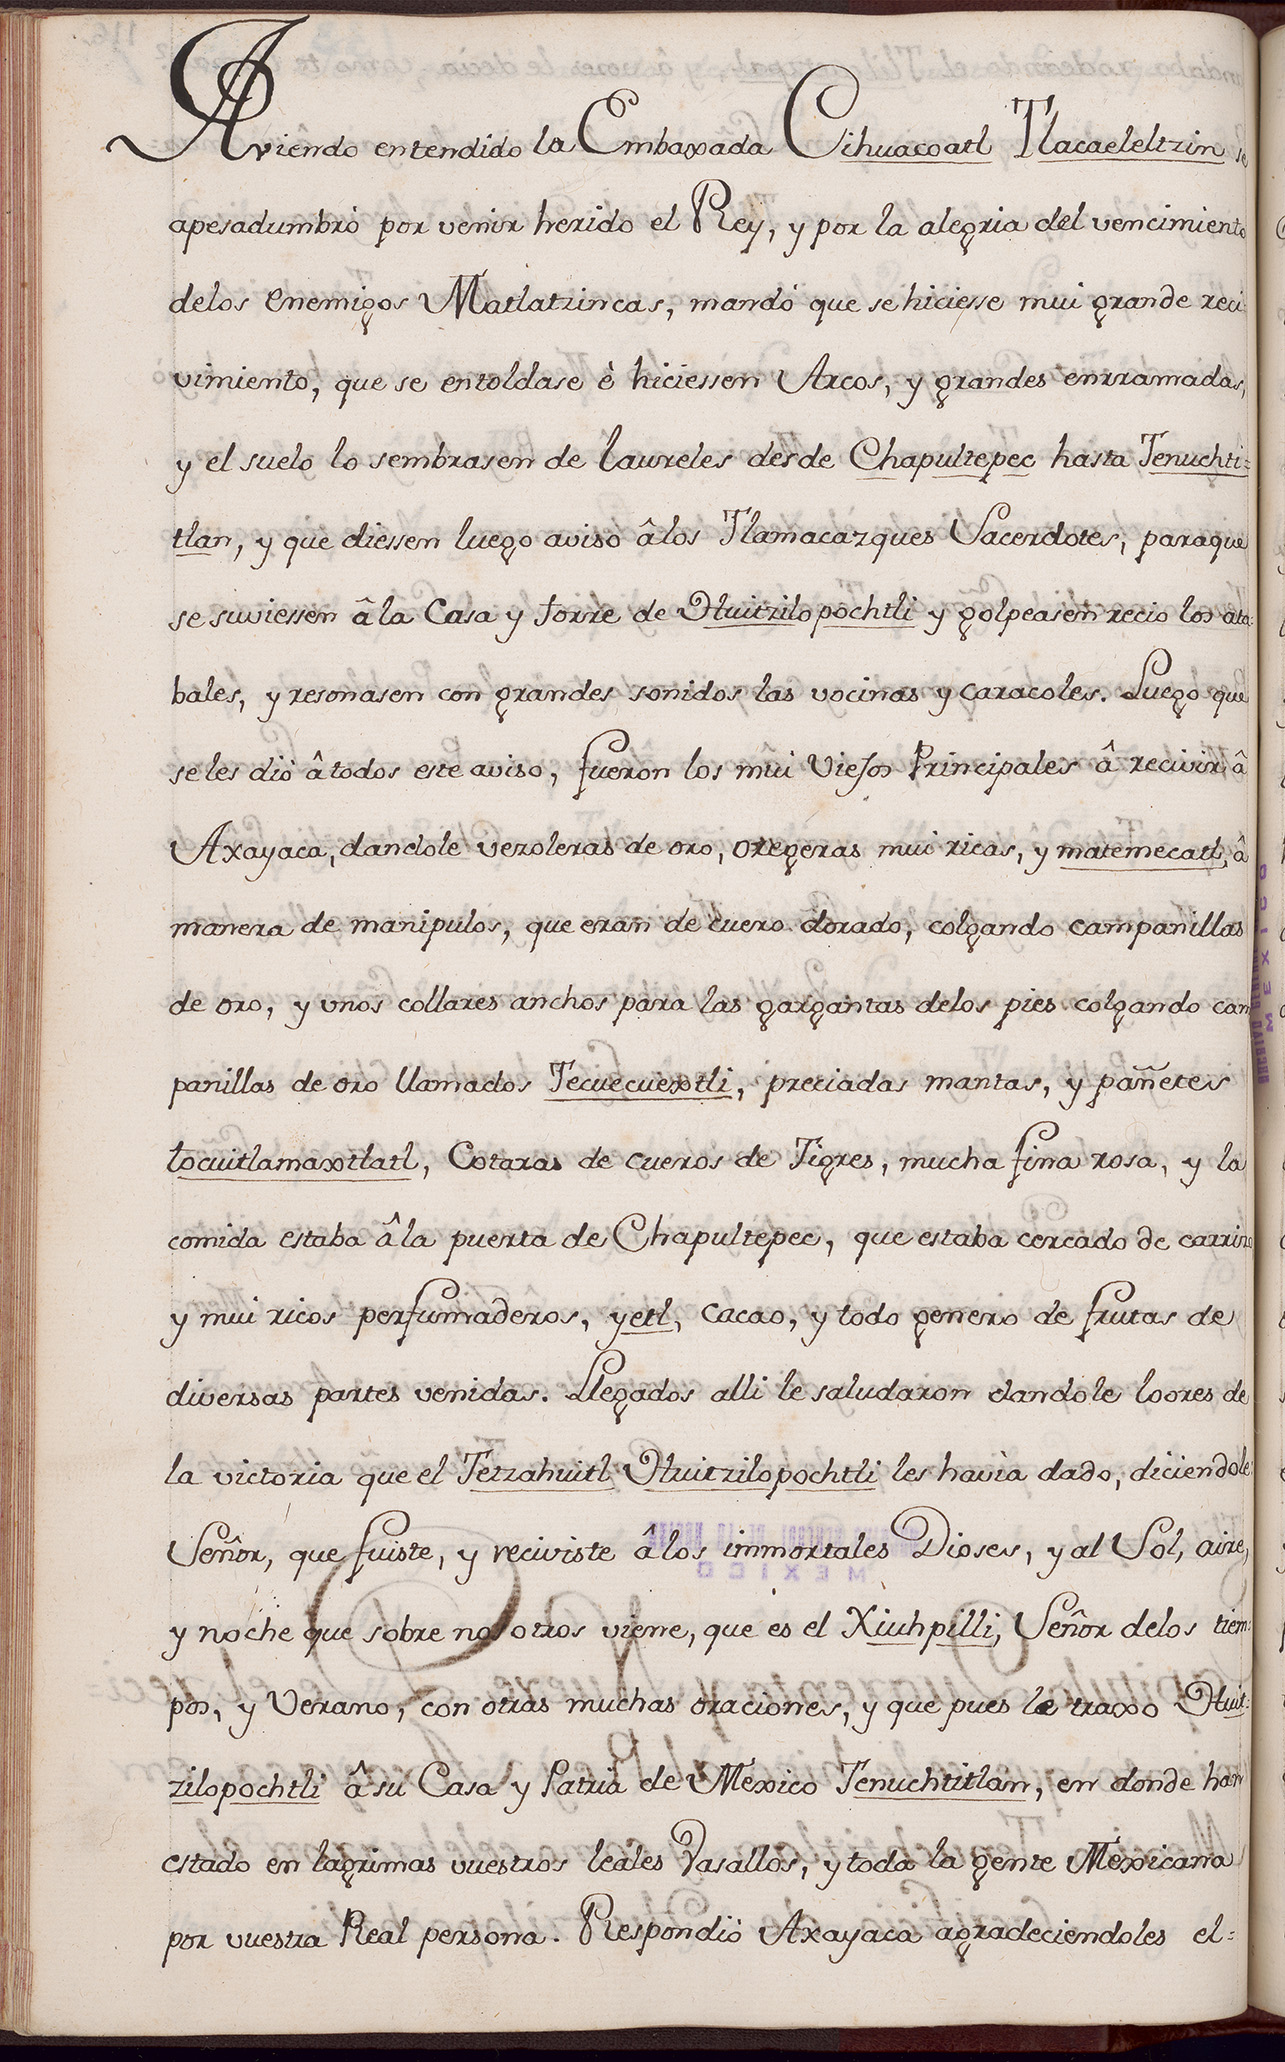 Aviendo entendido la Embaxada Cihuacoatl Tlacaeleltzin se
apesadumbrò por venir herido el Rey, y por la alegria del vencimiento
delos Enemigos Matlatzincas, mandò que se hiciesse mui grande reci-
vimiento, que se entoldase è hiciessen Arcos, y grandes enrramadas,
y el suelo lo sembrasen de laureles desde Chapultepec hasta Tenuchti=
tlan, y que diessen luego aviso âlos Tlamacazques Sacerdotes, paraque
se suviessen â la Casa y torre de Huitzilopochtli y golpeasen recio los ata-
bales, y resonasen con grandes sonidos las vocinas y caracoles. Luego que
se les diò â todos este aviso, fueron los mui Viejos Principales â recivir â
Axayaca, dandole vezoleras de oro, oregeras mui ricas, y matemecatl, â
manera de manipulos, que eran de cuero dorado, colgando campanillas
de oro, y vnos collares anchos para las gargantas delos pies colgando cam
panillas de oro llamados Tecuecuextli, preciadas mantas, y pañetes
tocuitlamaxtlatl, Cotaras de cueros de Tigres, mucha fina rosa, y la
comida estaba â la puerta de Chapultepec, que estaba cercado de carrizo
y mui ricos perfumaderos, yetl, cacao, y todo genero de frutas de
diversas partes venidas. Llegados alli le saludaron dandole loores de
la victoria que el Tetzahuitl Huitzilopochtli les havia dado, diciendole
Señor, que fuiste, y reciviste âlos immortales Dioses, y al Sol, aire,
y noche que sobre nosotros viene, que es el Xiuhpilli, Señor delos tiem=
pos, y Verano, con otras muchas oraciones, y que pues le traxo Huit-
zilopochtli â su Casa y Patria de Mexico Tenuchtitlan, en donde han
estado en lagrimas vuestros leales Vasallos, y toda la gente Mexicana
por vuestra Real persona. Respondiò Axayaca agradeciendoles el=